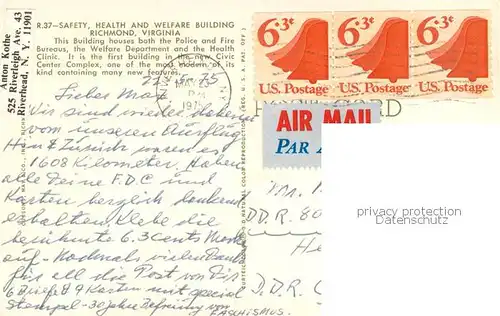 R.37—SAFETY, HEALTH AND WELFARE BUILDING
RICHMOND, VIRGINIA
This Building houses both the Police and Fire
Bureaus, the Welfare Department and the Health
Clinic. It is the first building in the new Civic
Center Complex, one of the most modern of its
kind containing many new features.
Anton Kothe
525 Riverleigh Ave. 43
Riverhead, N. Y. 11901
MAY 23
PM
6.3¢ 6.3¢ 6.3¢
U.S. Postage U.S. Postage U.S. Postage
AIR MAIL
PAR A
Lieber Max
Wir sind wieder daheim
von unseren Ausflug
Hin & Zurück waren es
1608 Kilometer. Haben
alle Deine F.D.C und
Karten herzlich dankend
erhalten. Klebe die
berühmte 6.3 Cents Marke
auf. Nochmals vielen Dank
für all die Post von Dir
6 Briefe & 7 Karten mit special
Stempel-30 Jahre Befreiung vom
FASCHISMUS.
D.D.R. 80
He
D.D.R. (
privacy protection
Datenschutz